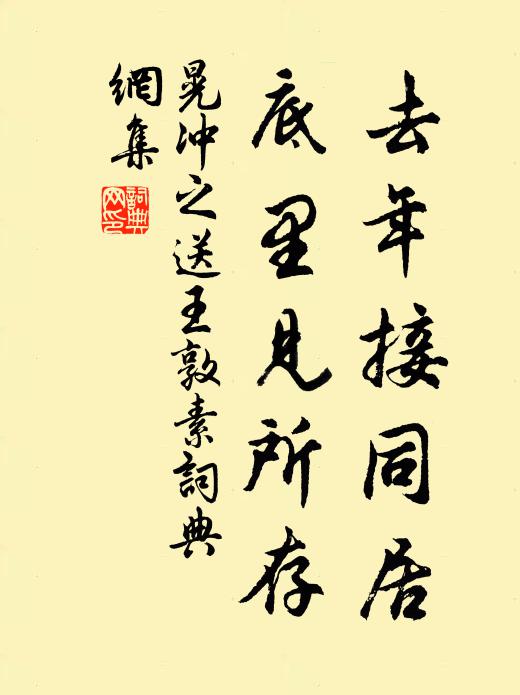 去年接同居
底里見所存
晁沖之送王敦素詞典
網集
詞典網印